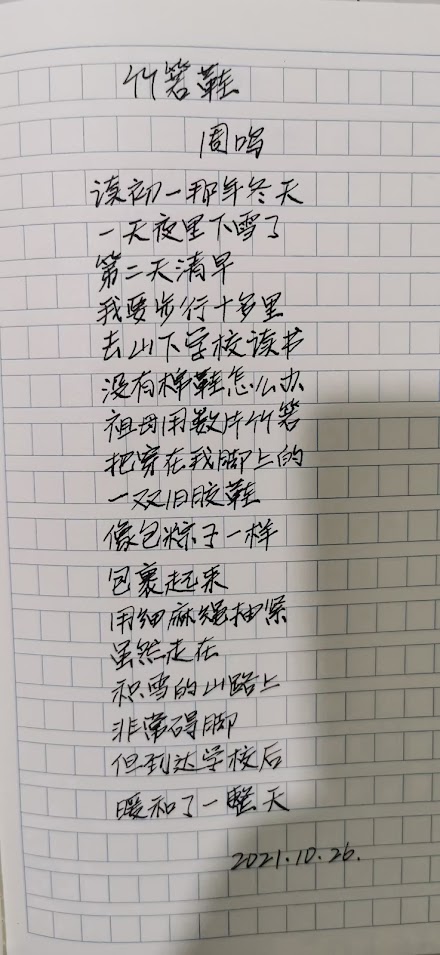 竹箬鞋
周鸣
读初一那年冬天
一天夜里下雪了
第二天清早
我要步行十多里
去山下学校读书
没有棉鞋怎么办
祖母用数片竹箬
把穿在我脚上的
一双旧胶鞋
像包粽子一样
包裹起来
用细麻绳抽紧
虽然走在
积雪的山路上
非常碍脚
但到达学校后
暖和了一整天
2021.10.26.